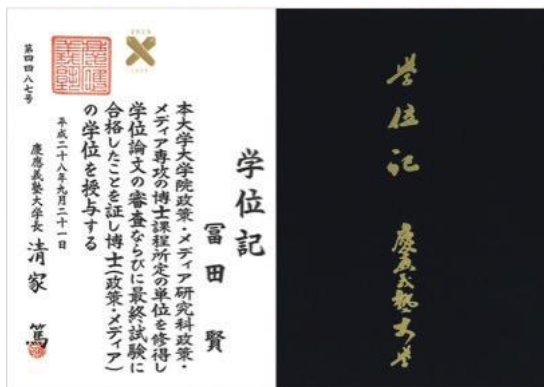 学位記
冨田 賢
本大学大学院政策・メディア研究科政策・
メディア専攻の博士課程所定の単位を修得し
学位論文の審査ならびに最終試験に
合格したことを証し博士(政策・メディア)
の学位を授与する
平成二十八年九月二十一日
慶應義塾大学長 清家 篤
第四四八七号
学位記
慶應義塾大学